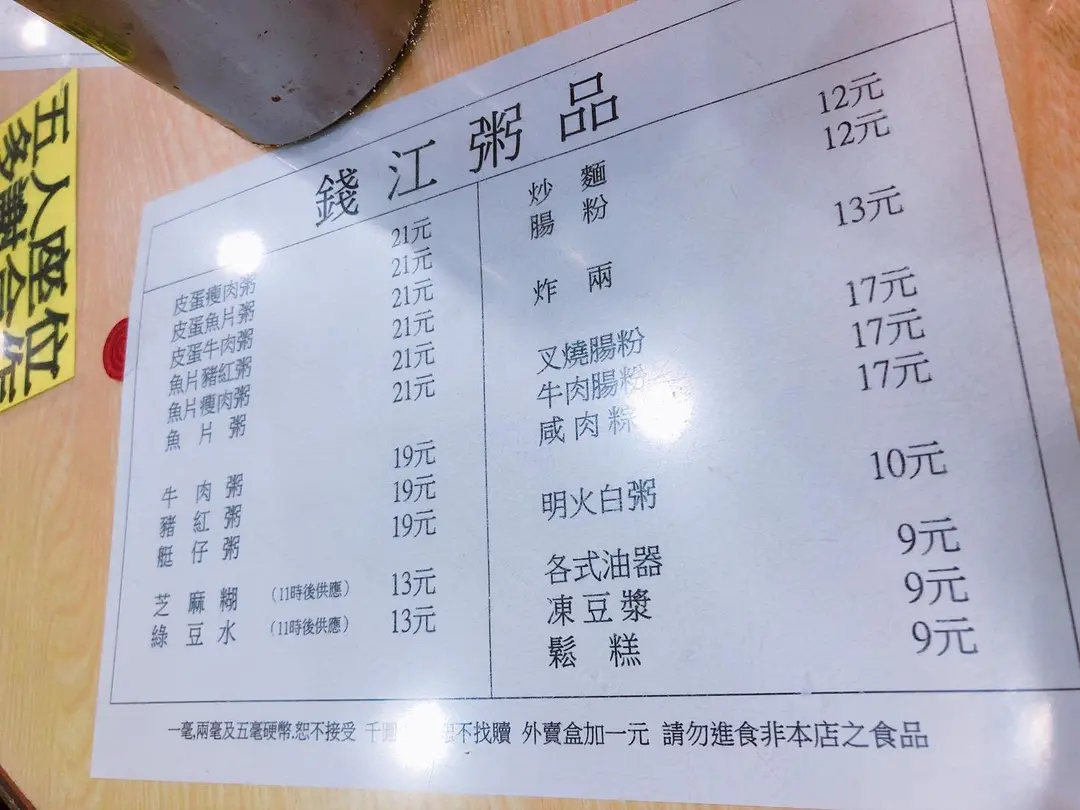 錢江粥品
皮蛋瘦肉粥 21元
皮蛋魚片粥 21元
皮蛋牛肉粥 21元
魚片豬紅粥 21元
魚片瘦肉粥 21元
魚片粥 21元
牛肉粥 19元
豬紅粥 19元
艇仔粥 19元
芝麻糊 (11時後供應) 13元
綠豆水 (11時後供應) 13元
炒麵 12元
腸粉 12元
炸兩 13元
叉燒腸粉 17元
牛肉腸粉 17元
咸肉粽 17元
明火白粥 10元
各式油器 9元
凍豆漿 9元
鬆糕 9元
一毫,兩毫及五毫硬幣.恕不接受 千 不找贖 外賣盒加一元 請勿進食非本店之食品
五人座位
多謝合作